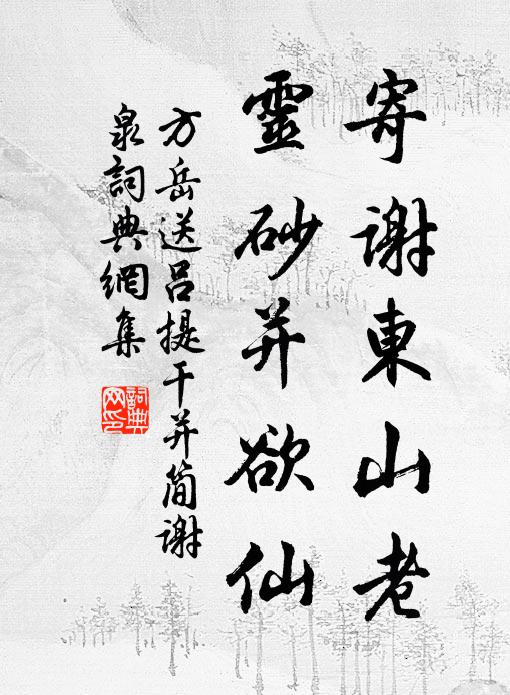 寄謝東山老
靈砂并欲仙
方岳送呂提干并简谢
泉詞典網集
詞典网印